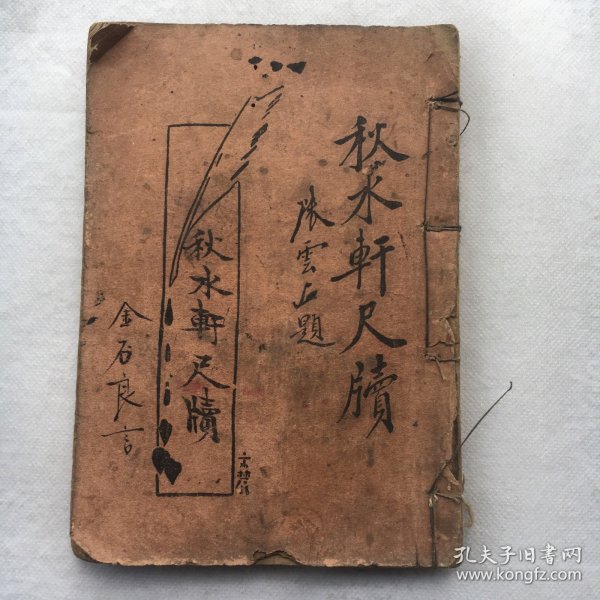 秋水軒尺牘
張雲上題
秋水軒尺牘
金石良言
孔夫子旧书网
www.kongfz.com